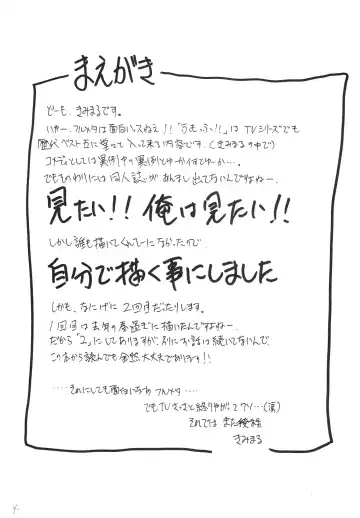 まえがき
どーも、きみまるです。
いやー、フルメタは面白いっスねえ!!「ふもっふ!!」はTVシリーズでも
歴代ベスト五に堂々入って来る内容です。(きみまるの中で)
コメディとしては異例中の異例とゆーか何てゆーか…。
でもそのわりには同人誌があんまし出てないんですよねー。
見たい!! 俺は見たい!!
しかし誰も描いてくんないになかったので
自分で描く事にしました
しかも、なにげに2回目だったりします。
1回目は去年の春過ぎに描いたんですよねー。
だから「2」にしてありますが、別にお話は続いてないんで
この本から読んでも全然大丈夫であります!!
……それにしても面白いなあ フルメタ……
でもTVさっさと終りやがって クソ…(涙)
それでは また後程
きみまる
4